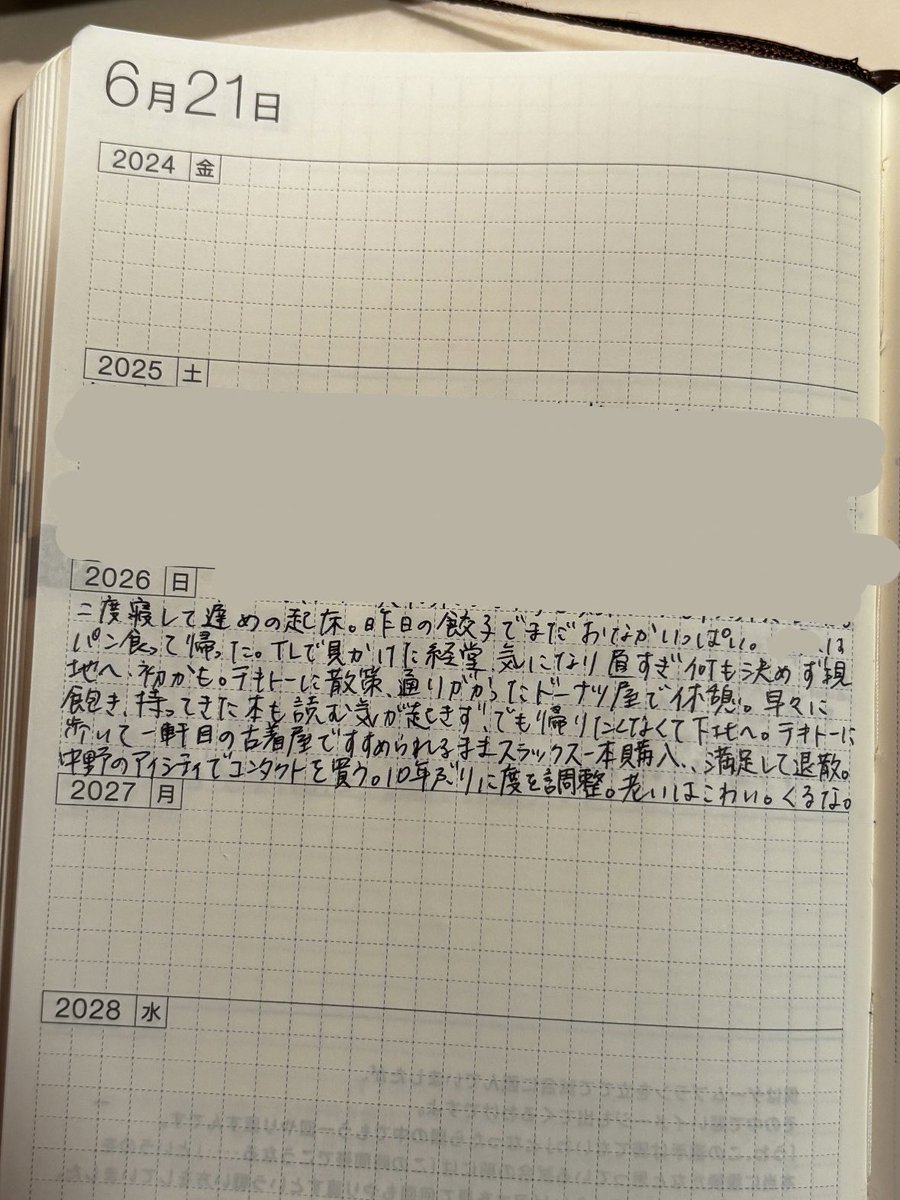 6月21日
2024 金
2025 土
2026 日
二度寝して遅めの起床。昨日の餃子でまだおなかいっぱい。 は
パン食って帰った。TLで見かけた経堂、気になり昼すぎ何も決めず現
地へ、初かも。テキトーに散策、通りがかったドーナツ屋で休憩。早々に
飽き、持ってきた本も読む気が起きず、でも帰りたくなくて下北へ。テキトーに
歩いて一軒目の古着屋ですすめられるままスラックス一本購入、満足して退散。
中野のアイシティでコンタクトを買う。10年ぶりに度を調整。老いはこわい。くるな。
2027 月
2028 水